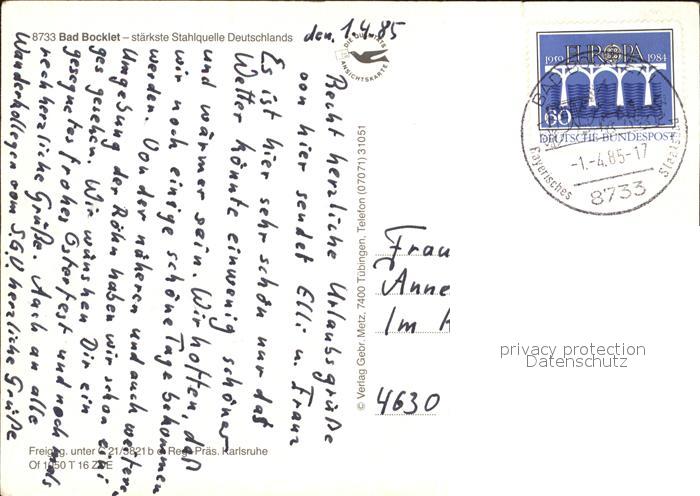 8733 Bad Bocklet – stärkste Stahlquelle Deutschlands
den, 1.4.85
DIE QUALITÄTS
ANSICHTSKARTE
Recht herzliche Urlaubsgrüße
von hier sendet Elli u. Franz
Es ist hier sehr schön nur das
Wetter könnte einwenig schöner
und wärmer sein. Wir hoffen, daß
wir noch einige schöne Tage bekommen
werden. Von der näheren und auch weiteren
Umgebung der Röhn haben wir schon eini-
ges gesehen. Wir wünschen Dir ein
gesegnetes frohes Osterfest und noch mals
recht herzliche Grüße. Auch an alle
Wanderkollegen vom S.G.V. herzliche Grüße
© Verlag Gebr. Metz, 7400 Tübingen, Telefon (07071) 31051
Freigeg. unter
Reg. Präs. Karlsruhe
Of 1050 T 16
EUROPA
1959 1984
60
DEUTSCHE BUNDESPOST
BAD
-1.-4.85-17
Bayerisches Staatsbad
8733
Frau
Anne
Im
4630
privacy protection
Datenschutz